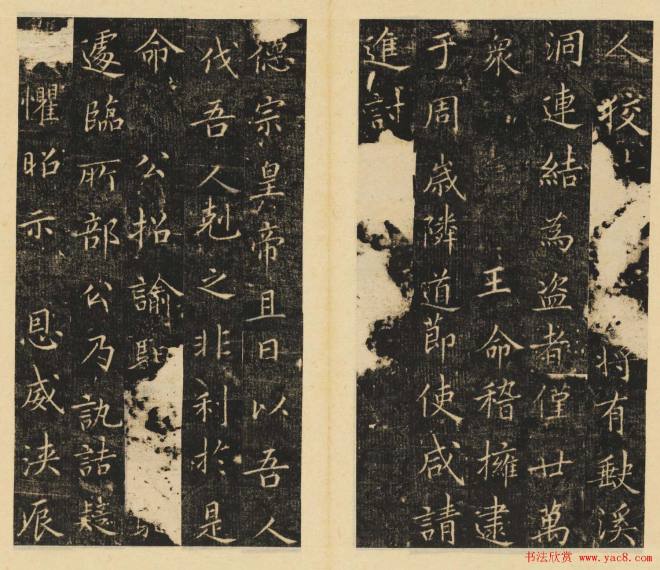 人狡
將有歟溪
洞連結為盜者僅廿萬
衆
王命稽擁逮
于周歲隣道節使咸請
進討
德宗皇帝且曰以吾人
伐吾人剋之非利於是
命
公招諭馳
遽臨所部公乃訊詰疑
懼昭示
恩威浹辰
书法欣赏 www.yac8.com